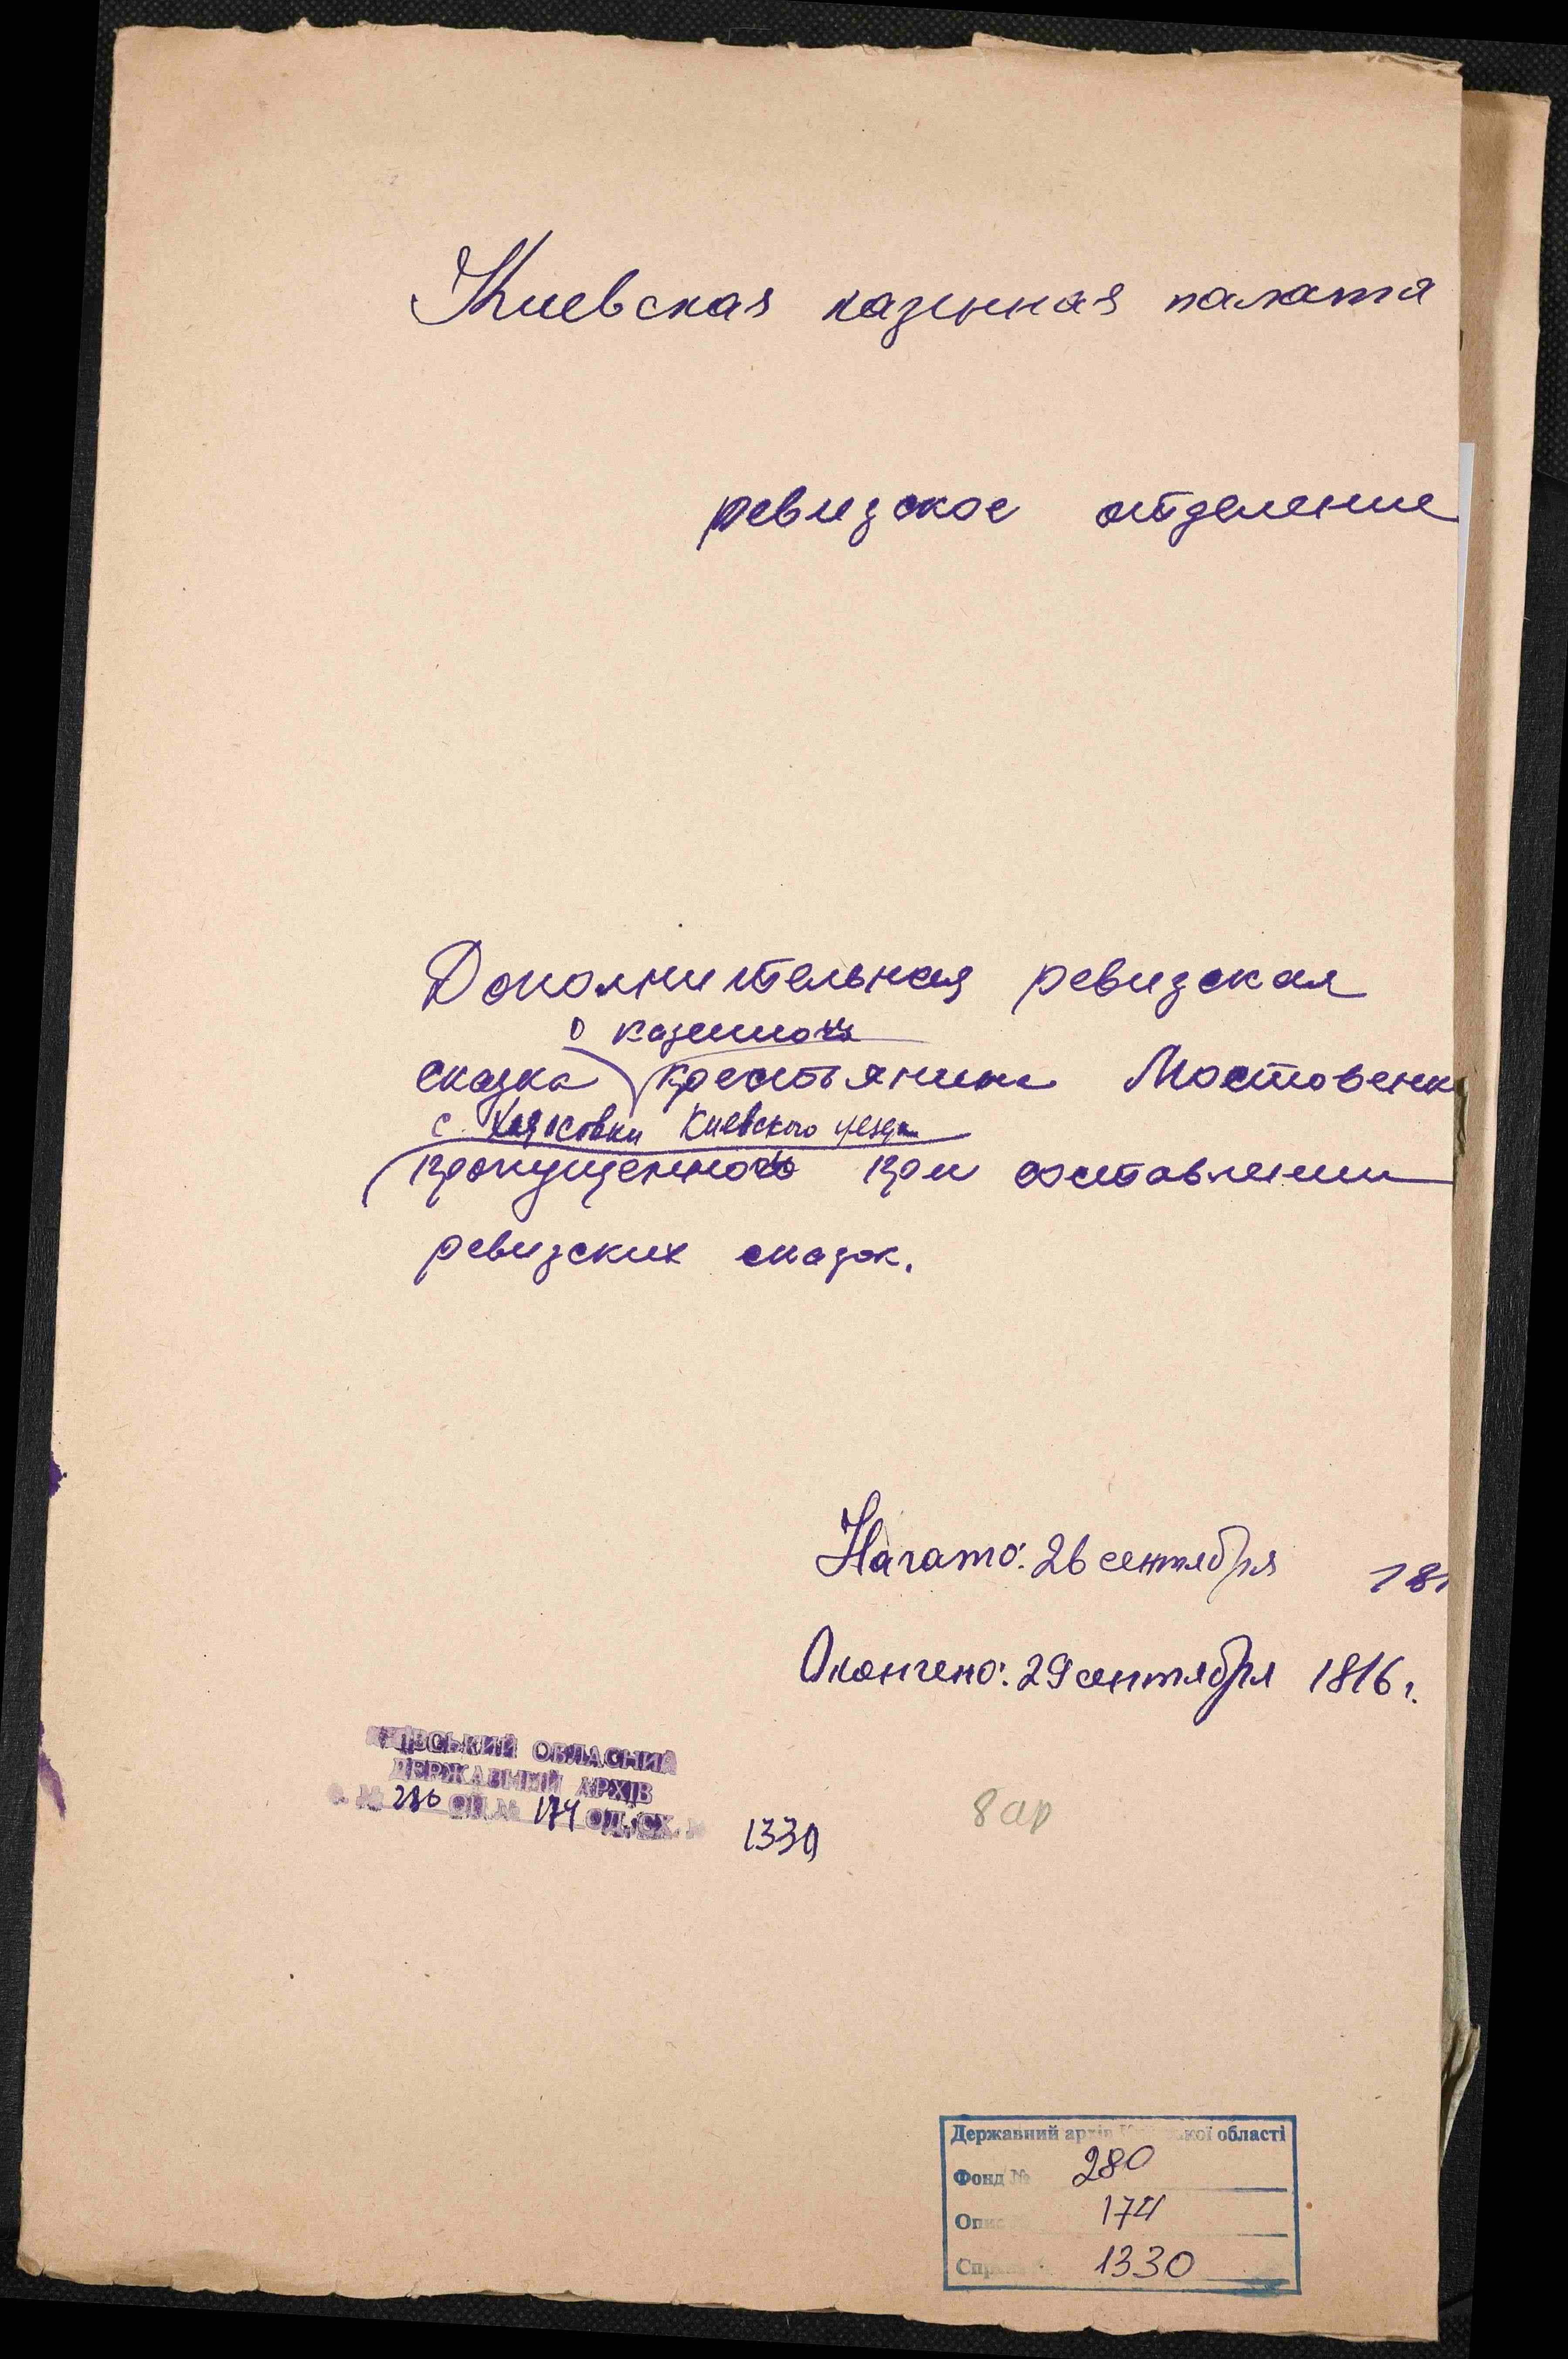 Киевская казенная палата
ревизское отделение
Дополнительная ревизская
о казенном
сказка крестьянине Мостовенк
с. Киевского уезда
пропущенного при составлении
ревизских сказок.
Начато: 26 сентября 181
Окончено: 29 сентября 1816 г.
КИЇВСЬКИЙ ОБЛАСНИЙ
ДЕРЖАВНИЙ АРХІВ
№ 280 ОП. № 174 ОД. СХ. 1330
8 ар
Державний архів Київської області
Фонд № 280
Опис 174
Справа 1330